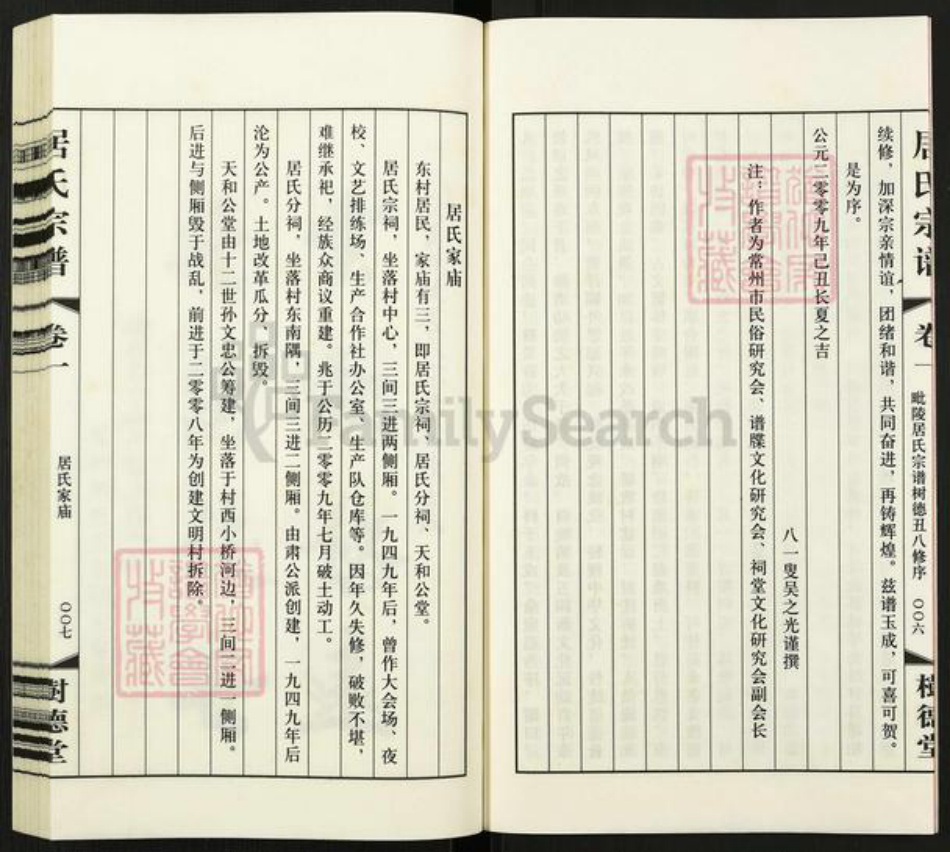 居氏宗谱
卷一
毗陵居氏宗谱树德丑八修序
〇〇六
树德堂
续修，加深宗亲情谊，团绪和谐，共同奋进，再铸辉煌。兹谱玉成，可喜可贺。
是为序。
公元二零零九年己丑长夏之吉
八一叟吴之光谨撰
注：作者为常州市民俗研究会、谱牒文化研究会、祠堂文化研究会副会长
居氏家庙
东村居民，家庙有三，即居氏宗祠、居氏分祠、天和公堂。
居氏宗祠，坐落村中心，三间三进两侧厢。一九四九年后，曾作大会场、夜
校、文艺排练场、生产合作社办公室、生产队仓库等。因年久失修，破败不堪，
难继承祀，经族众商议重建。兆于公历二零零九年七月破土动工。
居氏分祠，坐落村东南隅，三间三进二侧厢。由肃公派创建，一九四九年后
沦为公产。土地改革瓜分、拆毁。
天和公堂由十二世孙文忠公筹建，坐落于村西小桥河边，三间二进一侧厢。
后进与侧厢毁于战乱，前进于二零零八年为创建文明村拆除。
居氏宗谱
卷一
居氏家庙
〇〇七
树德堂
FamilySearch